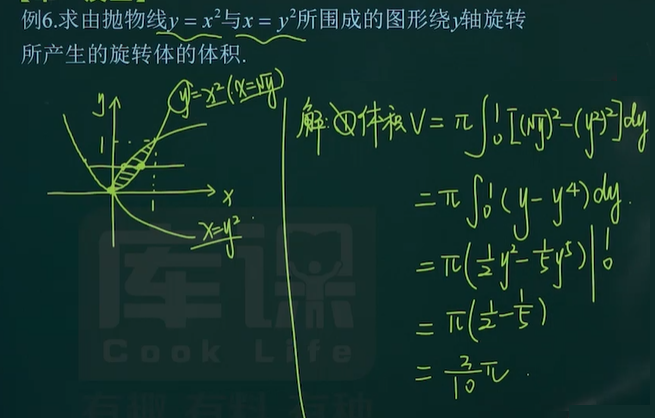 例6.求由抛物线y = x²与x = y²所围成的图形绕y轴旋转
所产生的旋转体的体积.
y
y=x²(x=√y)
1
x
1
x=y²
解:①体积V = π∫₀¹[(√y)²-(y²)²]dy
= π∫₀¹(y-y⁴)dy.
= π(1/2y²-1/5y⁵)|₀¹
= π(1/2-1/5)
= 3/10π.
库课
Cook Life
有趣 有料 有种